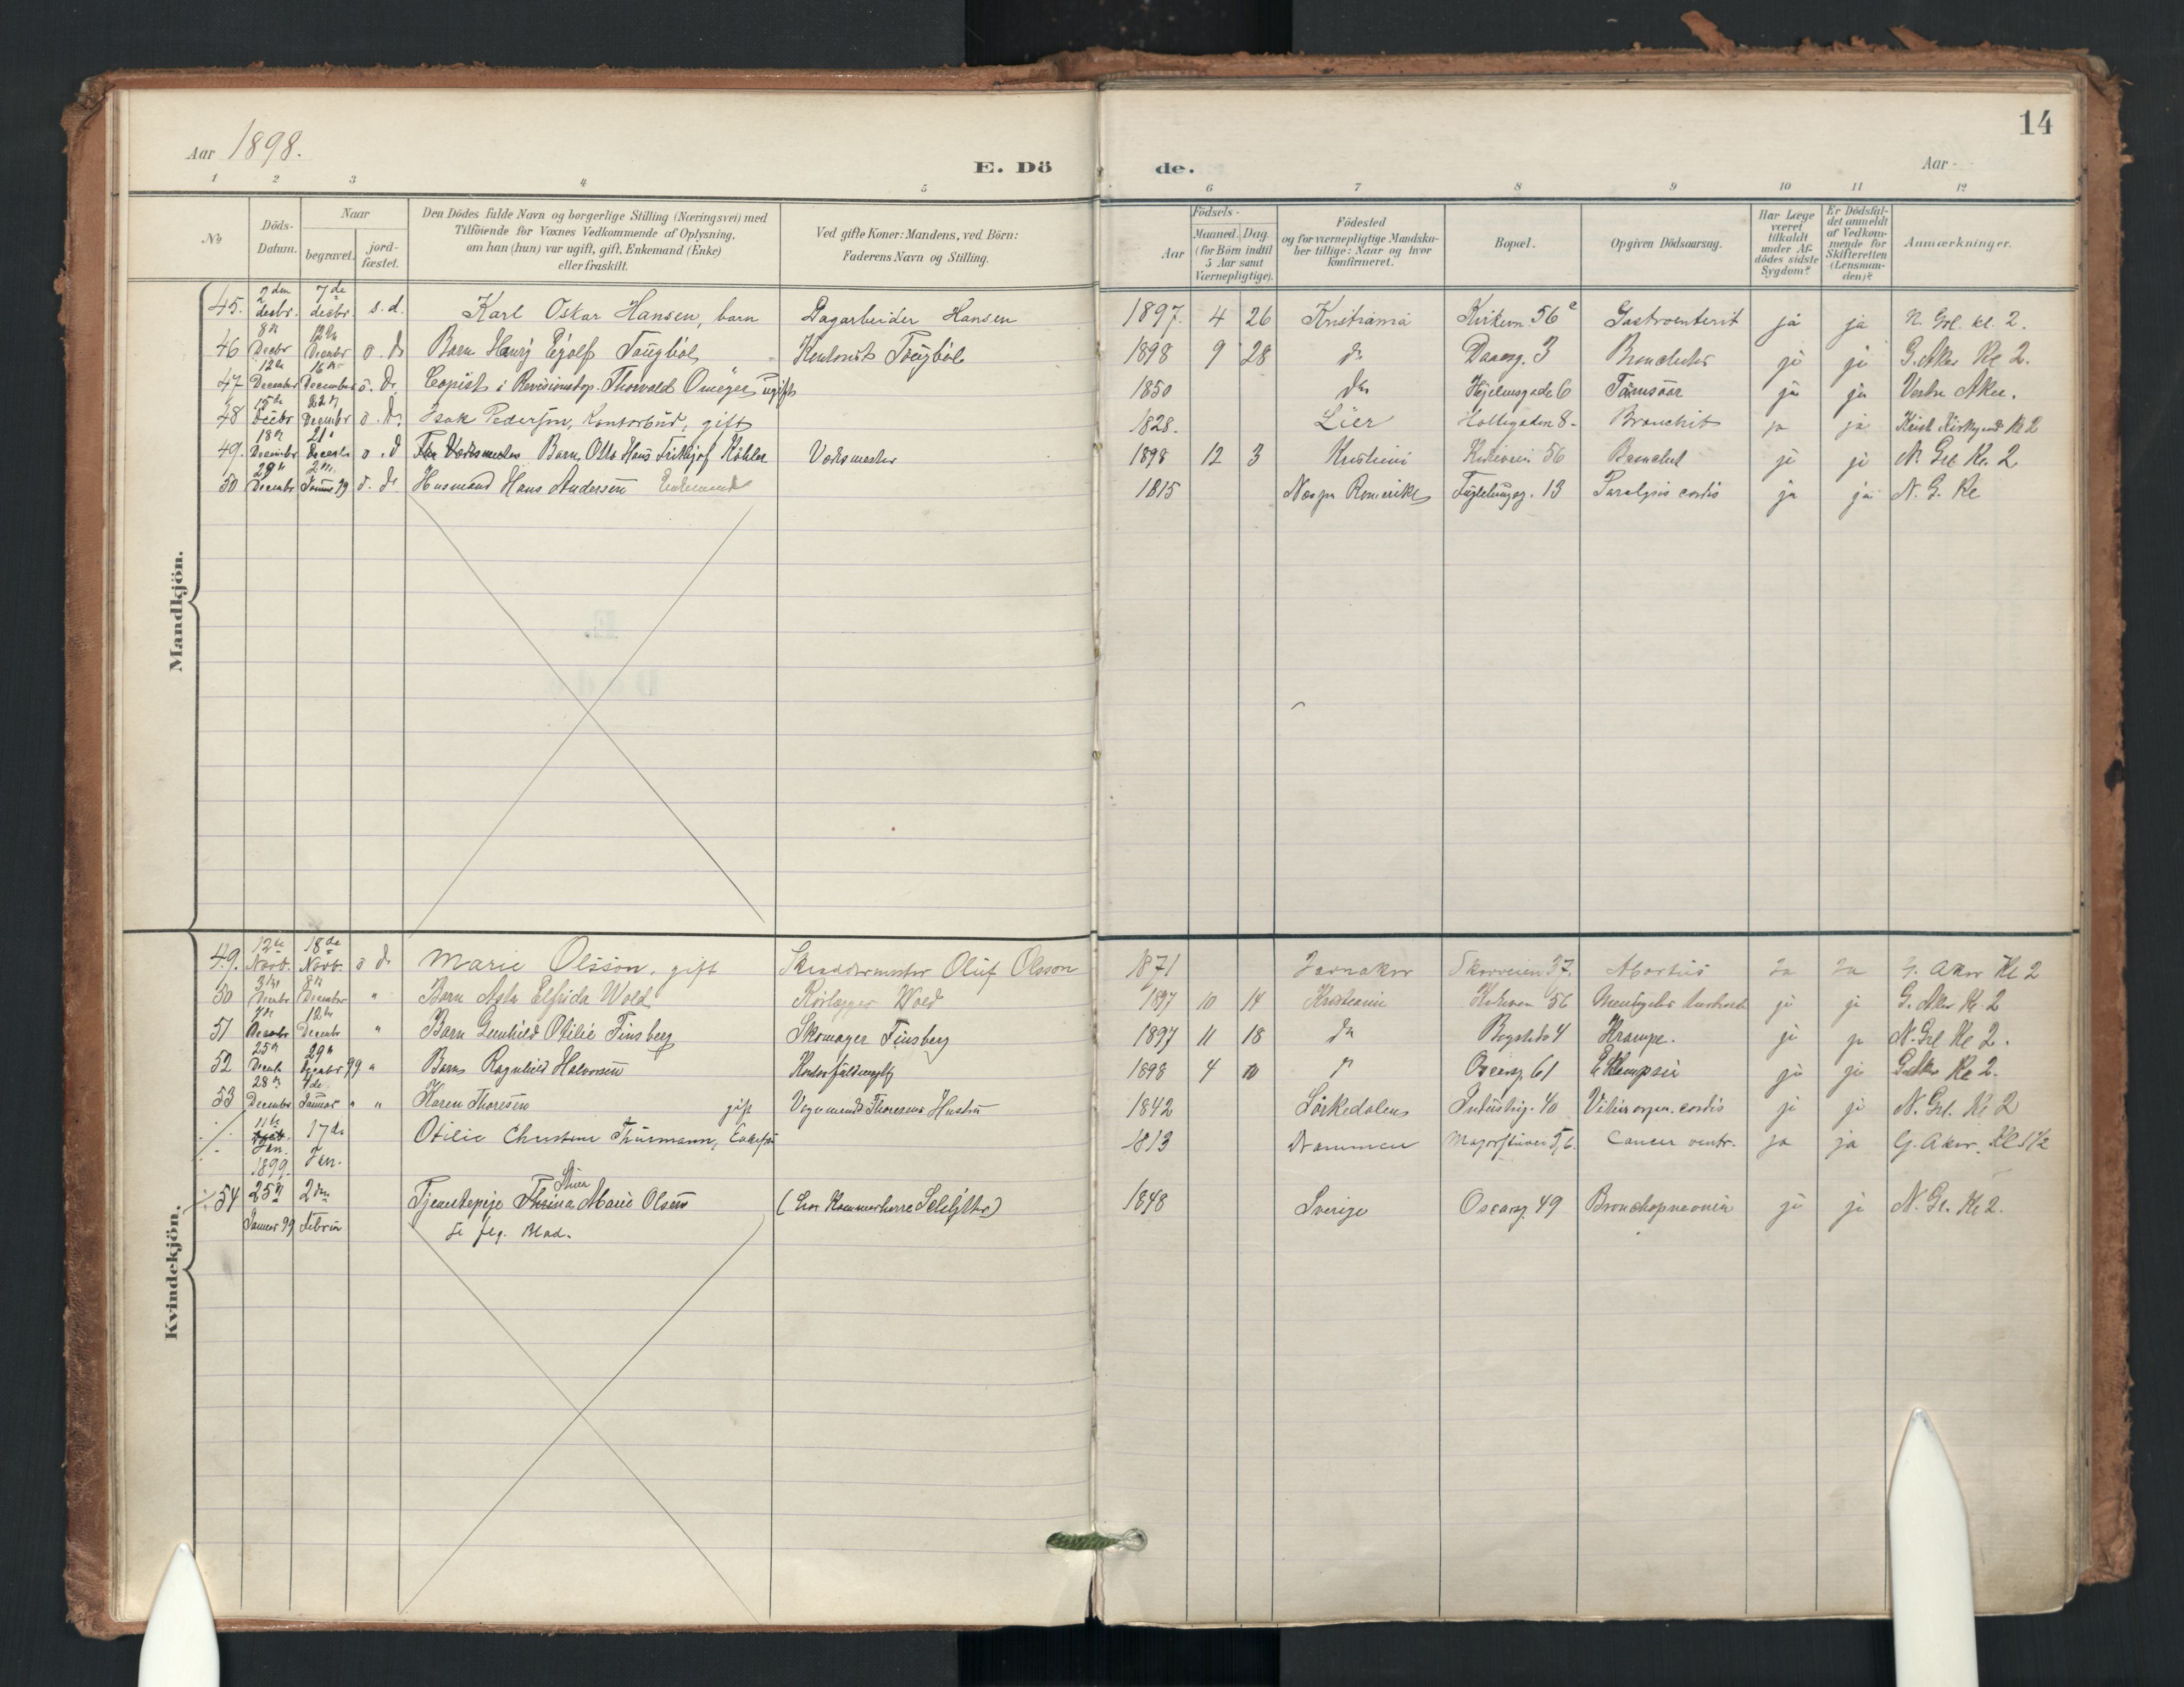 14
Aar 1898.
E. Dö
de.
Aar
1 2 3 4 5 6 7 8 9 10 11 12
No
Döds-
Datum.
Naar
begravet.
jord-
fæstet.
Den Dödes fulde Navn og borgerlige Stilling (Næringsvei) med
Tilföiende for Voxnes Vedkommende af Oplysning,
om han (hun) var ugift, gift, Enkemand (Enke)
eller fraskilt.
Ved gifte Koner: Mandens, ved Börn:
Faderens Navn og Stilling.
Födsels-
Aar
Maaned. Dag.
(for Börn indtil
5 Aar samt
Værnepligtige).
Födested
og for værnepligtige Mandska-
ber tillige: Naar og hvor
konfirmeret.
Bopæl.
Opgiven Dödsaarsag.
Har Læge
været
tilkaldt
under Af-
dödes sidste
Sygdom?
Er Dödsfal-
det anmeldt
af Vedkom-
mende for
Skifteretten
(Lensman-
den)?
Anmærkninger.
Mandkjön.
45. 2den decbr. 7de decbr. s.d. Karl Oskar Hansen, barn Dagarbeider Hansen 1897. 4 26 Kristiania Kirkevn. 56 Gastroenterit ja ja N. Grl. kl. 2.
46 8 Decbr 12 Decembr Barn Henrij Eyolf Tougböl Kontorist Tougböl 1898 9 28 do Daasg. 3 Bronchitis ja ja G. Aker Kl 2.
47 12 December 16 December Copist i Revisionsdep. Thorvald Omeyer, ugift 1850 do Hjelmsgade 6 ja ja Vestre Aker.
48 15de Decbr 22 Decembr Isak Pedersen, Kontorbud, gift 1828. Lier Holtegaden 8 Bronchit ja ja Krist. Kirkegaard Kl 2
49. 18 December 21 Barn, Otto Hans Frithjof Köhler Voksmester 1898 12 3 Kristiania Kirkeveien 56 Bronchit ja ja N. Grl Kl. 2
50 29 Decembr 2 99 Husmand Hans Andersen Enkemand 1815 Næs pr Romerike 13 Paralysis cordis ja ja N. G. Kl
Kvindekjön.
49. 12te Novb. 18de Novb. Marie Olsson, gift Skræddermester Oluf Olsson 1871 Jevnaker Skovveien 37. Abortus Ja Ja V. Aker Kl 2
50 3 Decbr 8 December " Barn Asta Elfrida Wold Rörlægger Wold 1897 10 14 Kristiania Kirkeven 56 ja ja G. Aker Kl. 2
51 7 12 Decembr " Barn Gunhild Otilie Finsberg Skomager Finsberg 1897 11 18 do Bogstadv 4 Krampe. ja ja N. Grl Kl 2.
52 25 29 " Barn Ragnhild Halvorsen 1898 4 10 Oscarsg. 61 Eklampsia ja ja G. Aker Kl 2.
53 28 December 4de Januar " " Karen Thoresen gift Vognmand Thoresens Hustru 1842 Sörkedalen Industrig. 40 Vitium organ. cordis ja ja N. Grl. Kl 2
11te Jan. 1899. 17de Jan. Otilie Christine Thürmann, Enkefru 1813 Drammen Majorstuvei 5,6. Cancer ventr. ja ja V. Aker. Kl 1 1/2
54 25 Januar 99 2den Februar Tjenestepige Stina Marie Olsen (hos Kammerherre 1848 Sverige Oscarsg. 49 Bronchopneumoni ja ja N. Gr. Kl 2.
Se flg. Blad.